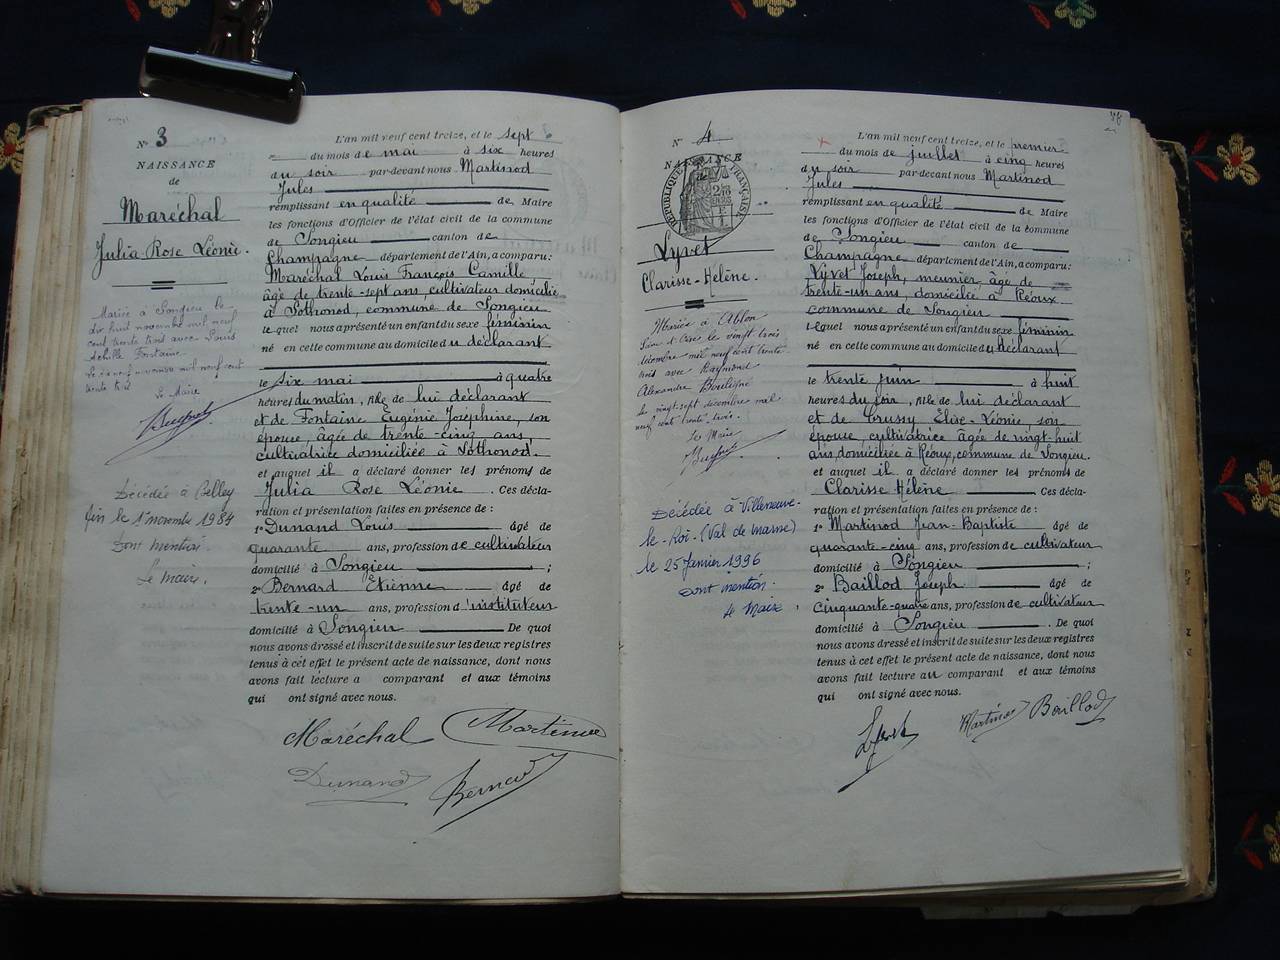 N° 3
NAISSANCE
de
Maréchal
Julia Rose Léonie.
Mariée à Songieu le
dix huit novembre mil neuf
cent trente trois avec Louis
Achille Fontaine
Le dix neuf novembre mil neuf cent
trente trois
Le Maire
Décédée à Belley
Ain le 1er novembre 1984
Dont mention.
Le Maire.
L'an mil neuf cent treize, et le sept
du mois de mai à six heures
du soir par-devant nous Martinod
Jules
remplissant en qualité de Maire
les fonctions d'Officier de l'état civil de la commune
de Songieu canton de
Champagne département de l'Ain, a comparu :
Maréchal Louis François Camille,
âgé de trente-sept ans, cultivateur domicilié
à Sothonod, commune de Songieu
lequel nous a présenté un enfant du sexe féminin
né en cette commune au domicile du déclarant
le six mai à quatre
heures du matin, fille de lui déclarant
et de Fontaine Eugénie Joséphine, son
épouse, âgée de trente-cinq ans,
cultivatrice domiciliée à Sothonod.
et auquel il a déclaré donner les prénoms de
Julia Rose Léonie . Ces décla-
ration et présentation faites en présence de :
1° Dunand Louis âgé de
quarante ans, profession de cultivateur
domicilié à Songieu ;
2° Bernard Etienne âgé de
trente-un ans, profession d'instituteur
domicilié à Songieu De quoi
nous avons dressé et inscrit de suite sur les deux registres
tenus à cet effet le présent acte de naissance, dont nous
avons fait lecture au comparant et aux témoins
qui ont signé avec nous.
Maréchal Martinod
Dunand Bernard
N° 4
NAISSANCE
RÉPUBLIQUE FRANÇAISE
Lyvet
Clarisse-Hélène.
Mariée à Ablon
Seine et Oise le vingt trois
décembre mil neuf cent trente
trois avec Raymond
Alexandre
Le vingt-sept décembre mil
neuf cent trente trois.
Le Maire
Décédée à Villeneuve-
le-Roi-(Val de Marne)
le 25 Janvier 1996
Dont mention.
Le Maire
L'an mil neuf cent treize, et le premier
du mois de juillet à cinq heures
du soir par-devant nous Martinod
Jules
remplissant en qualité de Maire
les fonctions d'Officier de l'état civil de la commune
de Songieu canton de
Champagne département de l'Ain, a comparu :
Lyvet Joseph, meunier, âgé de
trente-un ans, domicilié à Réoux
commune de Songieu
lequel nous a présenté un enfant du sexe féminin
né en cette commune au domicile du déclarant
le trente juin à huit
heures du soir, fille de lui déclarant
et de Trussy Elise-Léonie, son
épouse, cultivatrice âgée de vingt-huit
ans, domiciliée à Réoux, commune de Songieu.
et auquel il a déclaré donner les prénoms de
Clarisse Hélène Ces décla-
ration et présentation faites en présence de :
1° Martinod Jean-Baptiste âgé de
quarante-cinq ans, profession de cultivateur
domicilié à Songieu ;
2° Baillod Joseph âgé de
cinquante-quatre ans, profession de cultivateur
domicilié à Songieu . De quoi
nous avons dressé et inscrit de suite sur les deux registres
tenus à cet effet le présent acte de naissance, dont nous
avons fait lecture au comparant et aux témoins
qui ont signé avec nous.
Lyvet Martinod Baillod